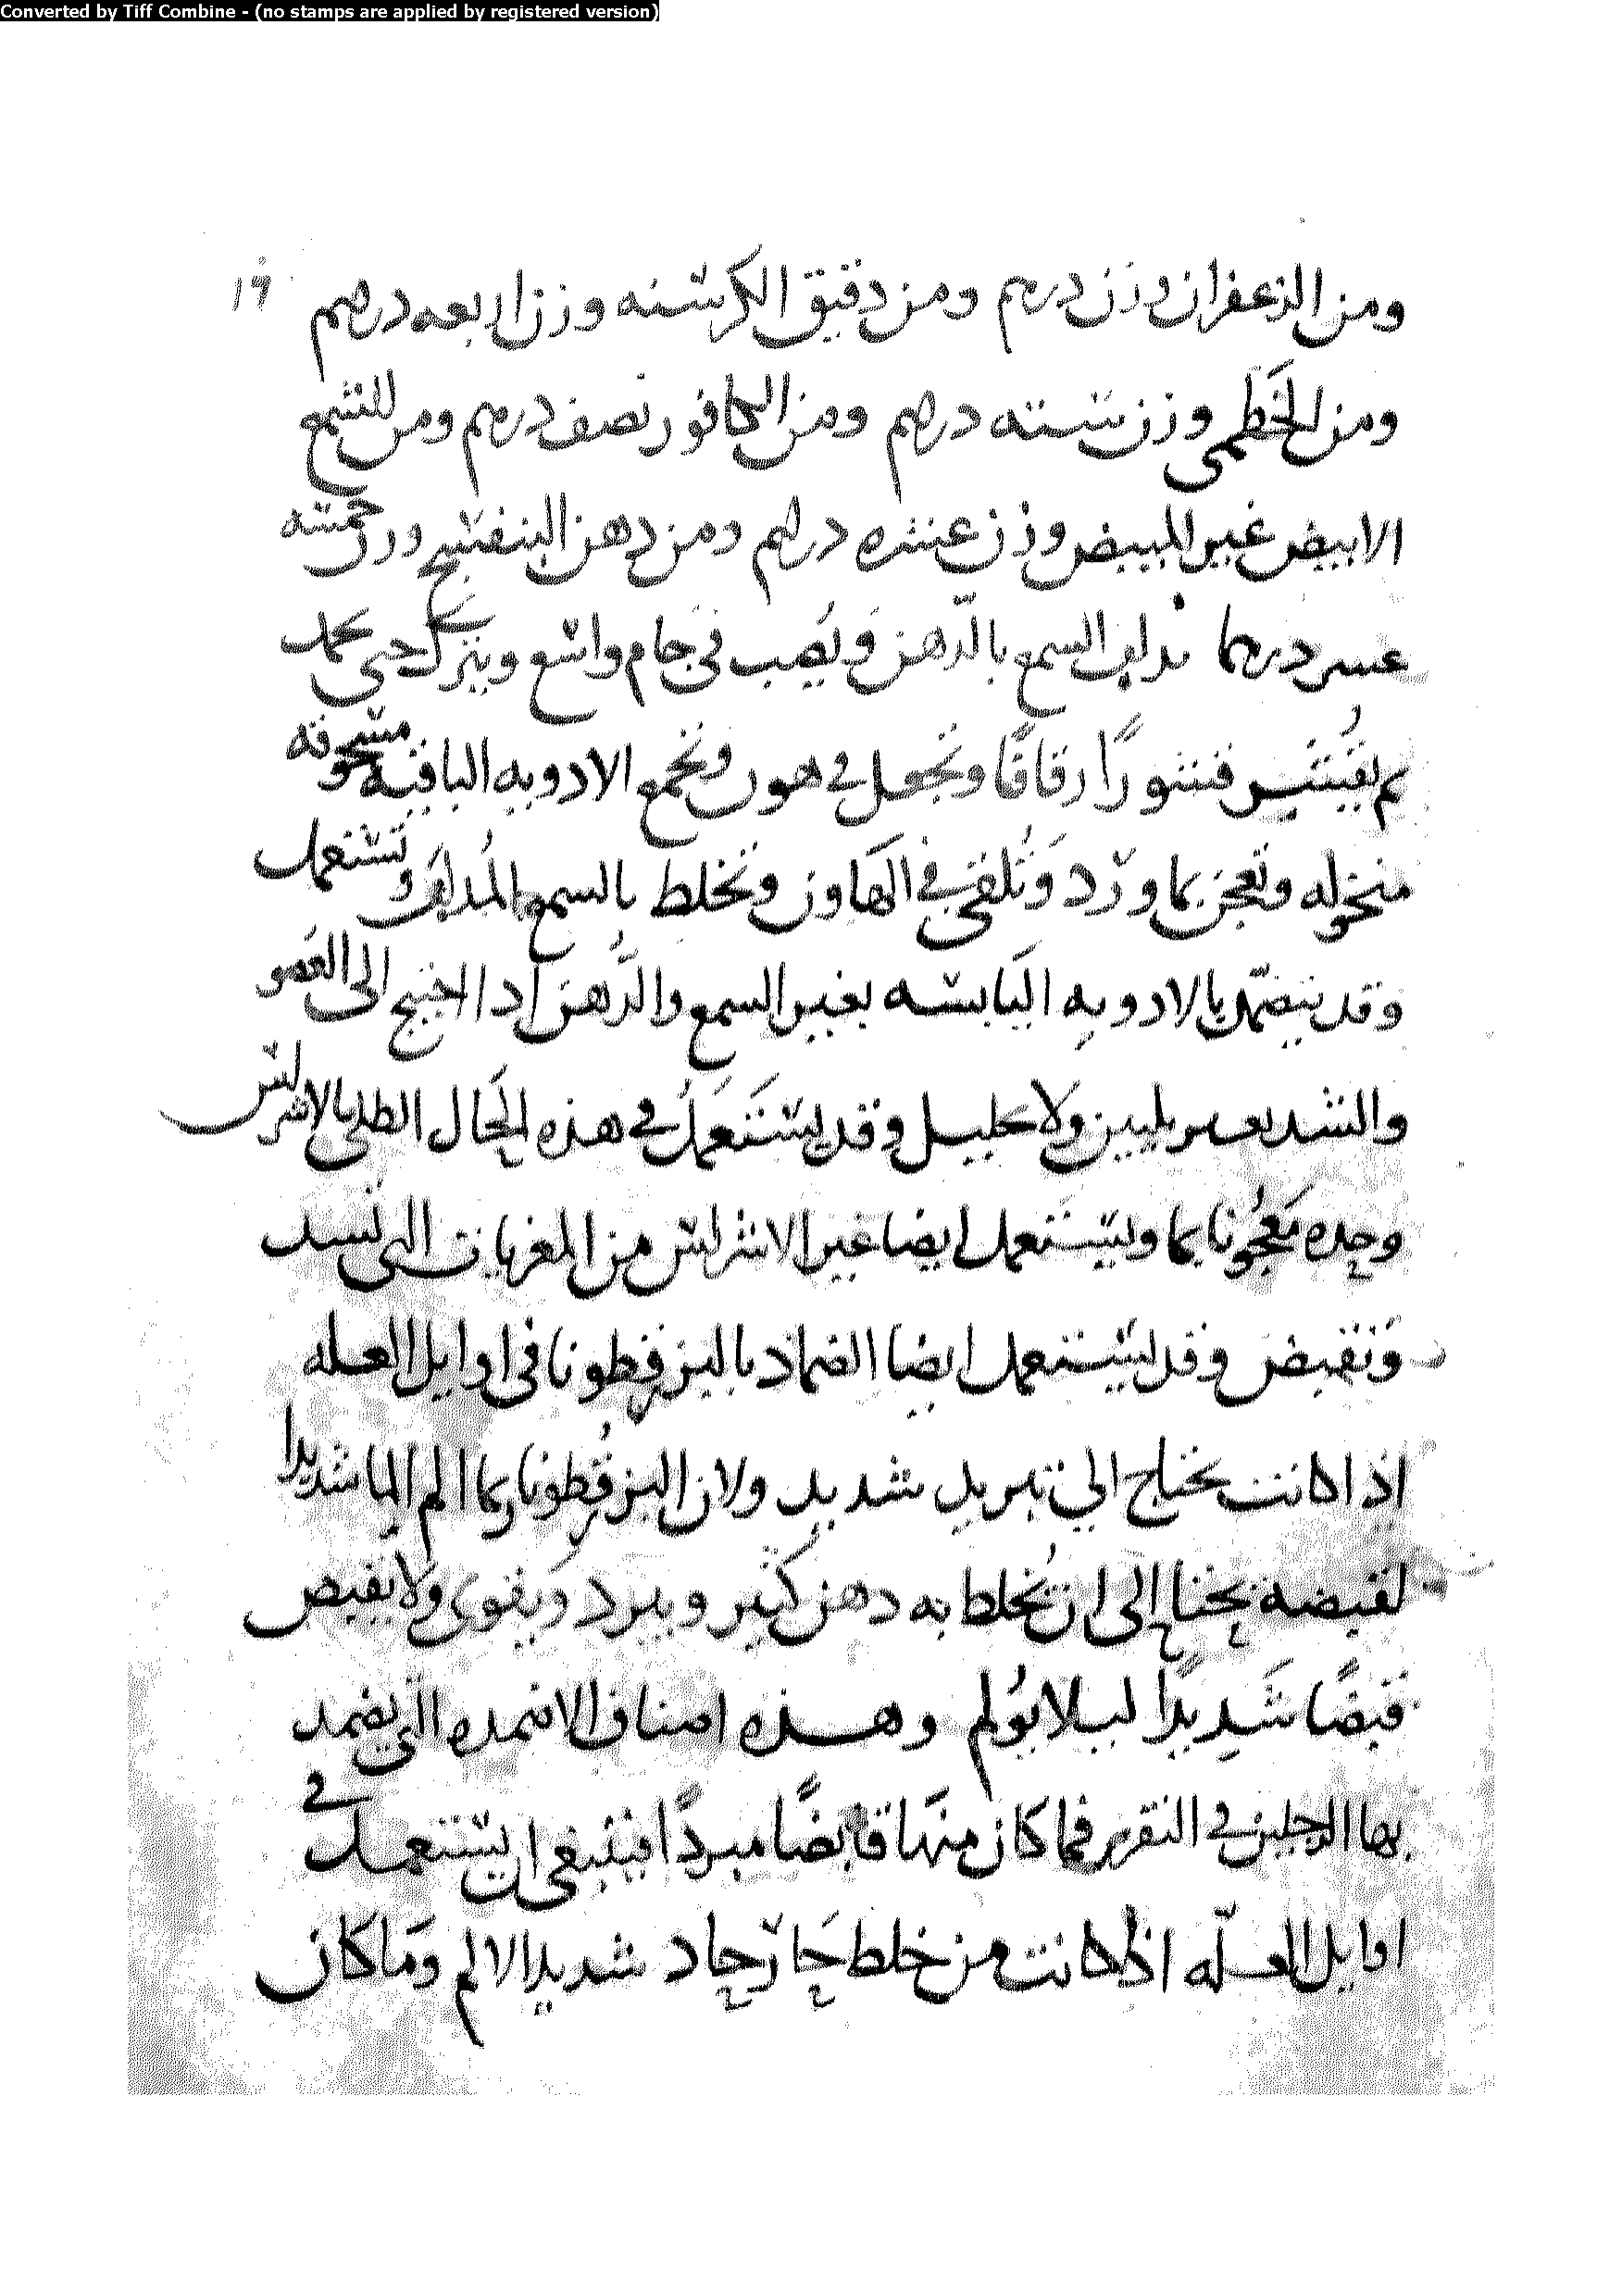 Converted by Tiff Combine - (no stamps are applied by registered version)
١٩
ومن الزعفران وزن درهم ومن دقيق الكرسنه وزن اربعه درهم
ومن الخَطمى وزن سته درهم ومن الكافور نصف درهم ومن الشمع
الابيض غير المبيض وزن عشره درهم ومن دهن البنفسج وزن خمسه
عسر درهما يداف السمع بالدّهن ويُصب فى جام واسع ويترك حتى
ثم يُقشر قشورًا رقاقًا وتجعل فى هون وتجمع الادويه الباقيه مسحوقه
منخوله وتعجن بماورد وَتُلقى فى الهَاون وتخلط بالسمع المُداف وتستعمل
وقد يتضمّد بالادويه اليَابسه بغير السمع والدُّهن اذا احتيج الى العَضو
والشد بغير تليين ولا تحليل وقد يستَعمَلُ فى هذه الحَال الطلى بالاشراس
وحده مَعجُونا بما ويستعمل ايضا غير الاشراس من المغريات التى تسد
وَتقبض وقد يستعمل ايضا الضماد بالبزرقطونا فى اوايل العله
اذا كانت يحتاج الى تبريد شديد ولان البزرقُطونا ربما الم الما شديدا
لقبضه يحتاج الى ان يُخلط به دهن كثير ويبرد وَيقوى ولا يقبض
قبضًا شَديدًا ليلا يُولم وهذه اصناف الاضمده التى يضمد
بها الرجلين فى النقرس فما كان منهَا قابضًا مبردًا فينبغى ان يستعمل فى
اوايل العلّه اذا كانت من خلط حَارّ حاد شديد الالم وَمَا كان